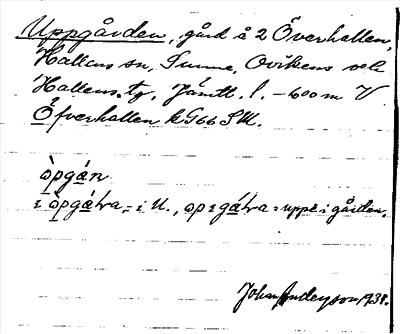 Uppgården, gård å 2 Överhallen,
Hallens sn, Sunne, Ovikens och
Hallens tg, Jämtl. l. – 600 m V
Öfverhallen kG66 SM.
òpgán
i òpgáɬra = i U., op i gáɬra = uppe i gården.
Johan Anderson 1931.